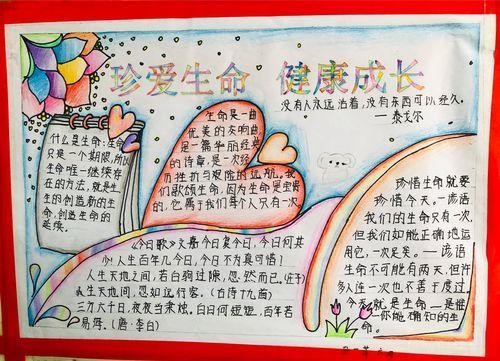 珍爱生命 健康成长
没有人永远活着，没有东西可以经久。
——泰戈尔
什么是生命:生命
只是一个期限,所以
生命唯一继续存
在的方法,就是生
生的创造新的生
命,创造生命的
延续。
生命是一曲
优美的交响曲,
是一篇华丽经典
的诗章,是一次经
历挫折与艰险的远航。我
们歌颂生命,因为生命是宝贵
的,它属于我们每个人只有一次
珍惜生命就要
珍惜今天。—谚语
我们的生命只有一次,
但我们如能正确地运
用它,一次足矣。—谚语
生命不可能有两次,但许
多人连一次也不善于度过。
今天就是生命—是唯
你能确知的生
命。
《今日歌》文嘉今日复今日,今日何其
少!人生百年几今日,今日不为真可惜!
人生天地之间,若白驹过隙,忽然而已。(庄子)
人生天地间,忽如远行客。(古诗十九首)
三万六千日,夜夜当秉烛。白日何短短,百年若
易得。(唐·李白)